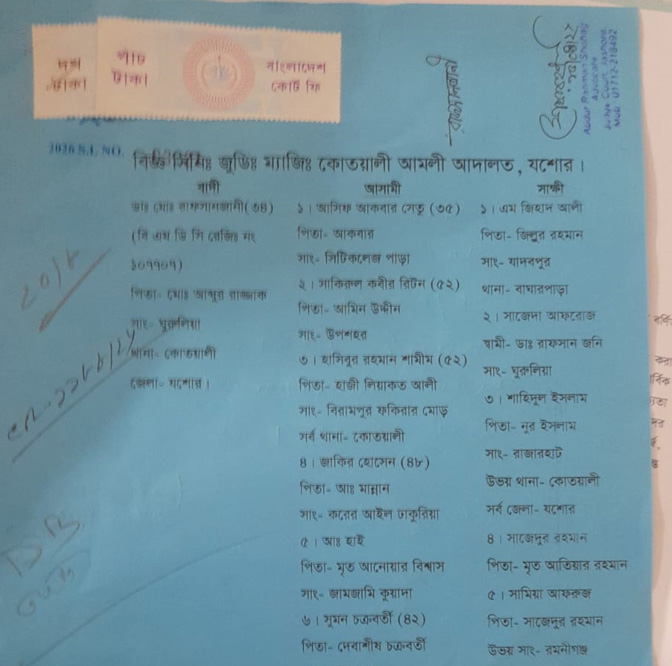 দশ
টাকা
পাঁচ
টাকা
বাংলাদেশ
কোর্ট ফি
Abdur Rahman
Advocate
Judge Court, Jashore.
Mob: 01712-218492
2026 S.I. NO.
বিজ্ঞ সিনিঃ জুডিঃ ম্যাজিঃ কোতয়ালী আমলী আদালত, যশোর।
বাদী
ডাঃ মোঃ রাফসানজানী(৩৪)
(বি এম ডি সি রেজিঃ নং
১০৭৭০৭)
পিতা- মোঃ আব্দুর রাজ্জাক
সাং- ঘুরুলিয়া
থানা- কোতয়ালী
জেলা- যশোর।
আসামী
১। আসিফ আকবার সেতু (৩৫)
পিতা- আকবার
সাং- সিটিকলেজ পাড়া
২। সাকিরুল কবীর রিটন (৫২)
পিতা- আমিন উদ্দীন
সাং- উপশহর
৩। হাসিবুর রহমান শামীম (৫২)
পিতা- হাজী লিয়াকত আলী
সাং- বিরামপুর ফকিরার মোড়
সর্ব থানা- কোতয়ালী
৪। জাকির হোসেন (৪৮)
পিতা- আঃ মান্নান
সাং- করের আইল ঢাকুরিয়া
৫। আঃ হাই
পিতা- মৃত আনোয়ার বিশ্বাস
সাং- জামজামি কুয়াদা
৬। সুমন চক্রবর্তী (৪২)
পিতা- দেবাশীষ চক্রবর্তী
সাক্ষী
১। এম জিহাদ আলী
পিতা- জিল্লুর রহমান
সাং- যাদবপুর
থানা- বাঘারপাড়া
২। সাজেদা আফরোজ
স্বামী- ডাঃ রাফসান জনি
সাং- ঘুরুলিয়া
৩। শাহিদুল ইসলাম
পিতা- নুর ইসলাম
সাং- রাজারহাট
উভয় থানা- কোতয়ালী
সর্ব জেলা- যশোর
৪। সাজেদুর রহমান
পিতা- মৃত আতিয়ার রহমান
৫। সামিয়া আফরুজ
পিতা- সাজেদুর রহমান
উভয় সাং- রমনীগঞ্জ